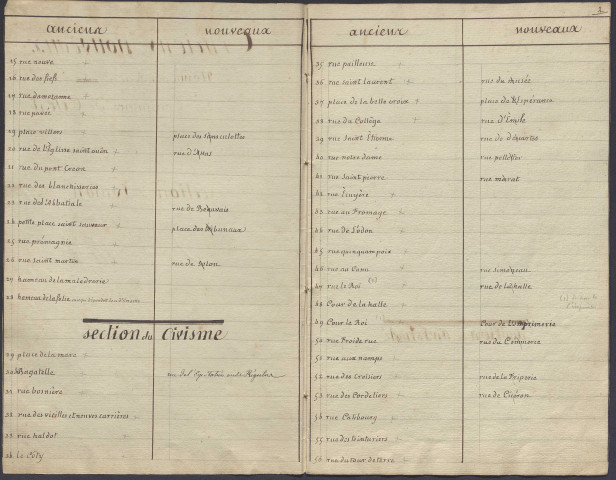 anciens nouveaux
15 rue neuve
16 rue des
17 rue
18 rue pavée
19 place villers place des
20 rue de l'Eglise saint ouen rue d'
21 rue du pont Créon
22 rue des blanchisseries
23 rue de l'Abbatiale rue de Beauvais
24 petite place saint sauveur place des Tribunaux
25 rue prémagnie
26 rue saint martin rue de Solon
27 hameau de la maladrerie
28 hameau de la folie
section du Civisme
29 place de la mare
30 Bagatelle
31 rue bosnière
32 rue des vieilles et neuves carrières
33 rue haldot
34 le City
2
anciens nouveaux
35 rue pailleuse
36 rue saint laurent rue du Musée
37 place de la belle croix place de l'Espérance
38 rue du Collège rue d'Emile
39 rue saint Etienne rue de
40 rue notre dame rue pelletier
41 rue saint pierre rue marat
42 rue Ecuyère
43 rue au Fromage
44 rue de l'odon
45 rue quinquempoix
46 rue au Canu rue simoneau
47 rue le Roi (1) rue de la halle
48 Cour de la halle
49 Cour le Roi Cour de l'imprimerie
50 rue Froide rue rue du Commerce
51 rue aux namps
52 rue des Croisiers rue de la Friperie
53 rue des Cordeliers rue de
54 rue Calibourg
55 rue des teinturiers
56 rue du tour de terre